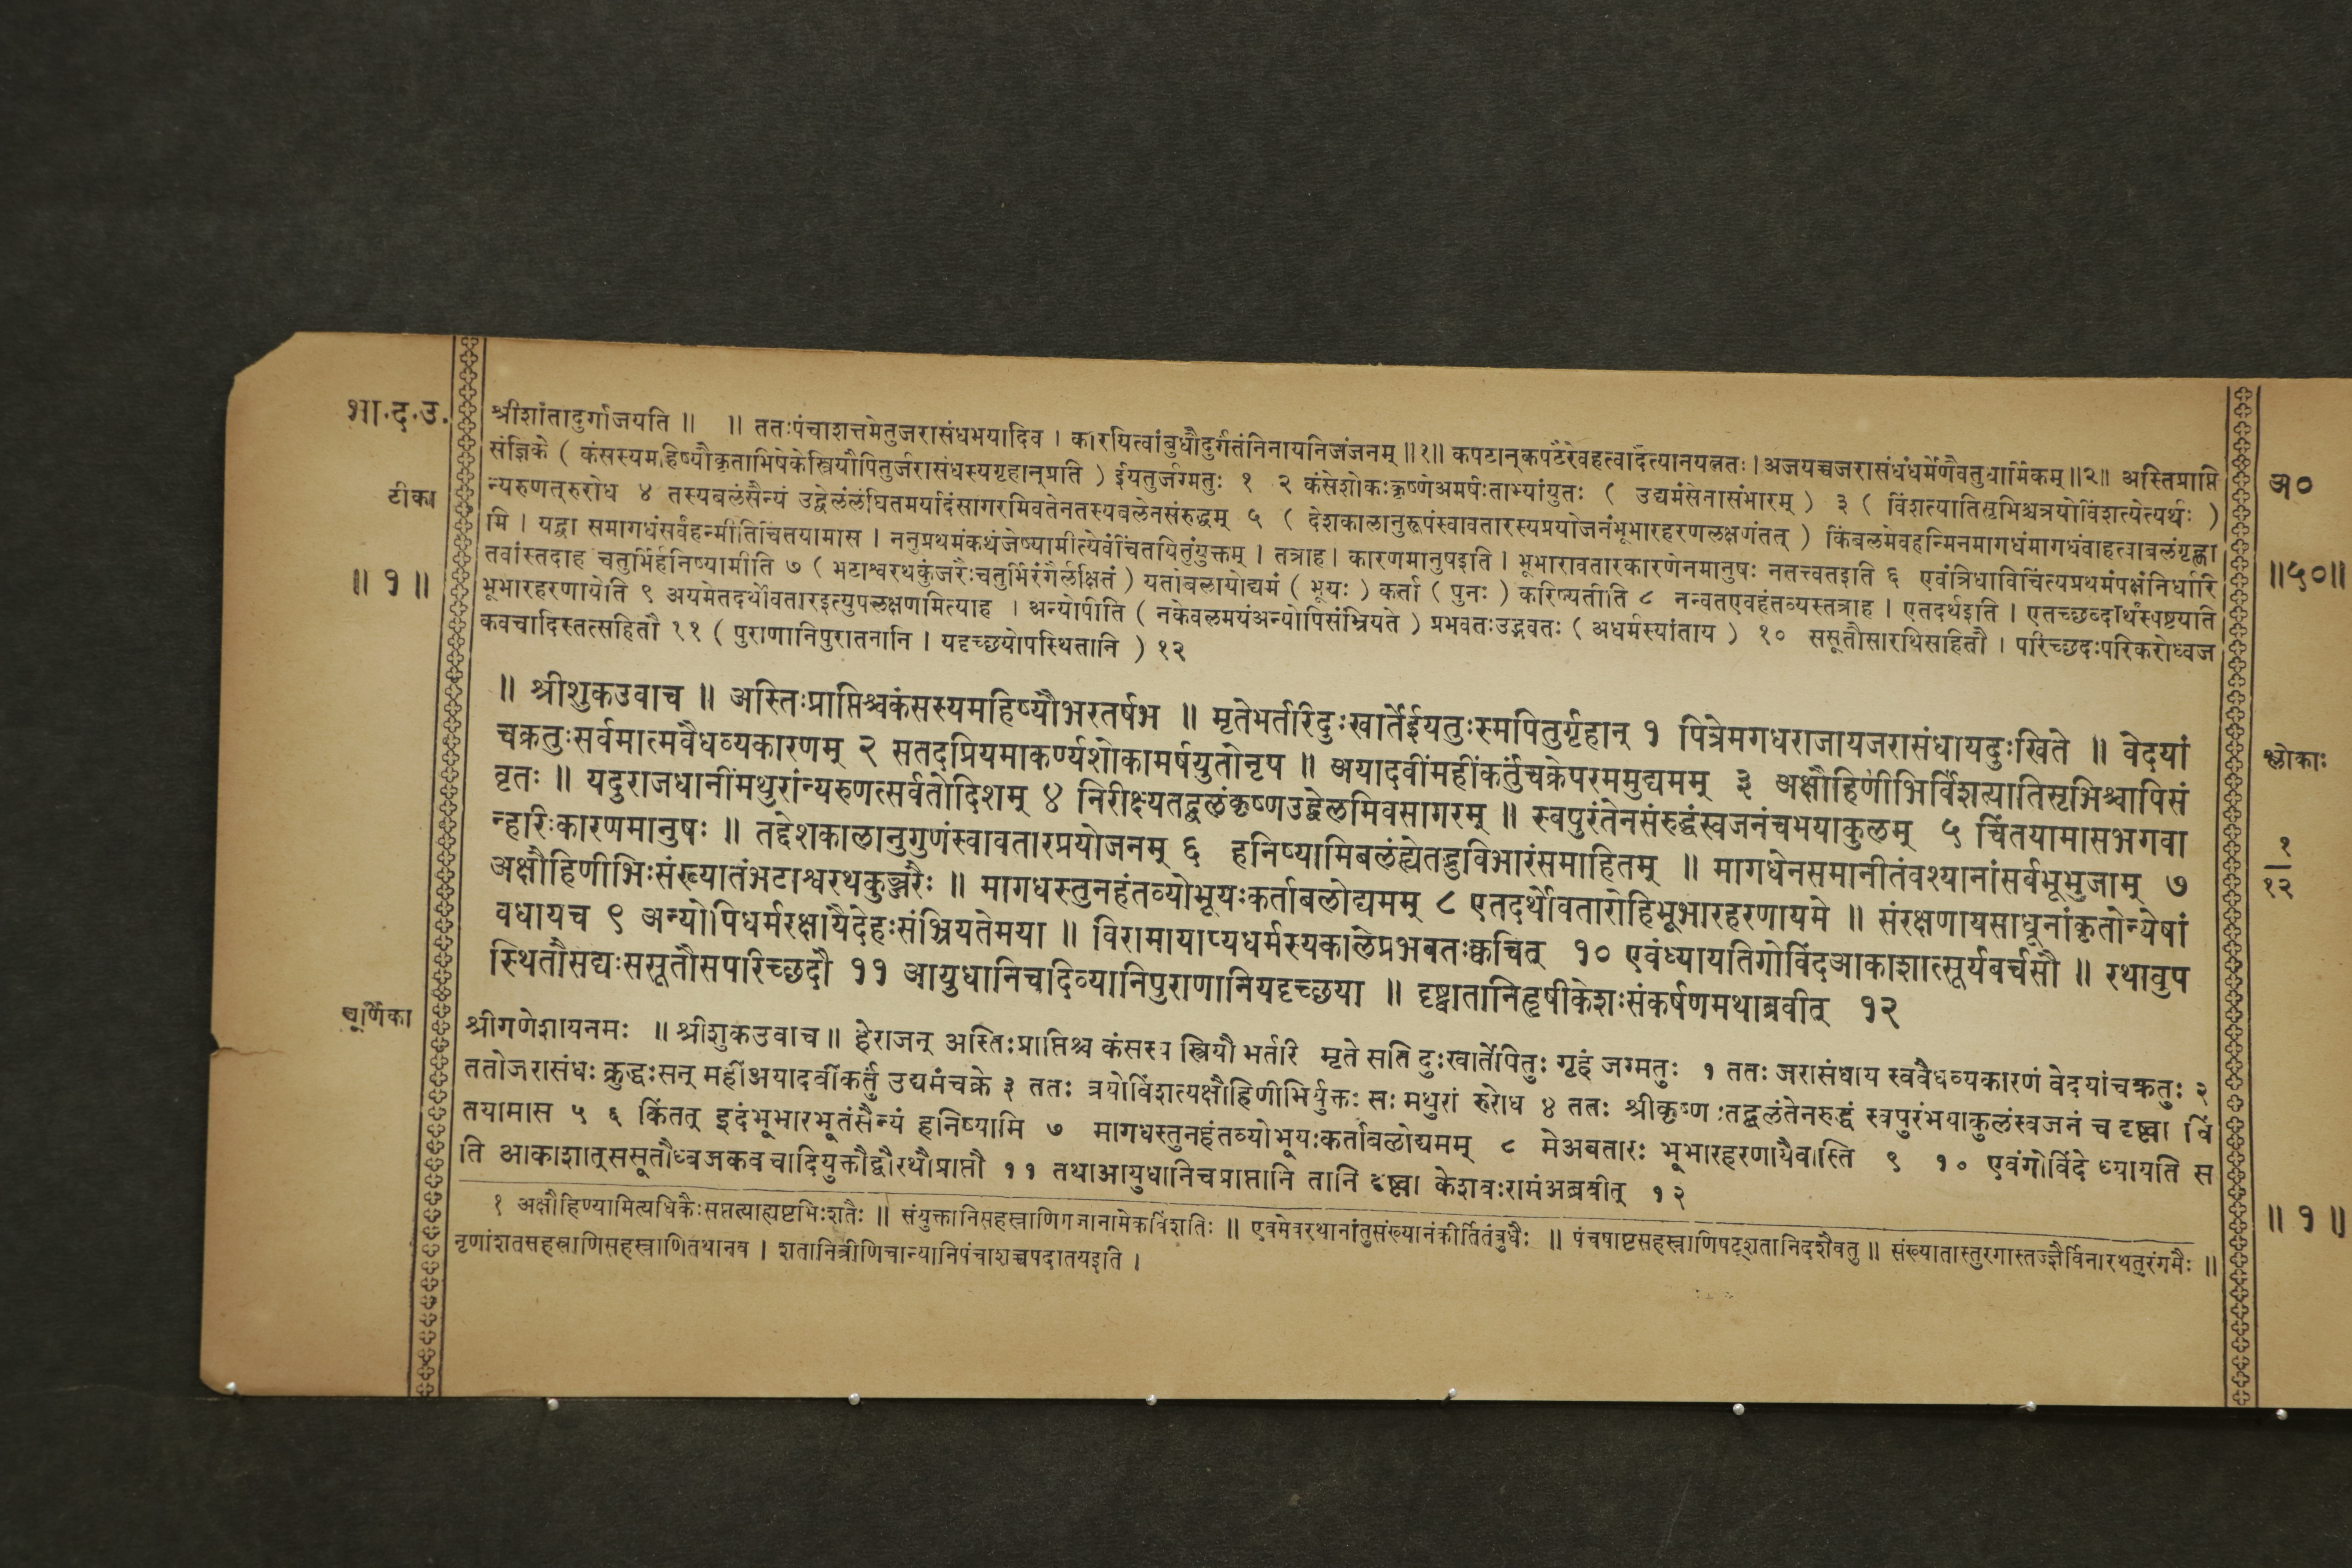 भा.द.उ.
टीका
॥ १ ॥
श्रीशांतादुर्गाजयति ॥ ॥ ततःपंचाशत्तमेतुजरासंधभयादिव । कारयित्वांबुधौदुर्गंतंनिनायनिजंजनम् ॥१॥ कपटान्कपटैरेवहत्वादैत्यानयत्नतः । अजयच्चजरासंधंधर्मेणैवतुधार्मिकम् ॥२॥ अस्तिप्राप्ति
संज्ञिके ( कंसस्यमहिष्यौकृताभिषेकेस्त्रियौपितुर्जरासंधस्यगृहान्प्रति ) ईयतुर्जग्मतुः १ २ कंसेशोकःकृष्णेअमर्षःताभ्यांयुतः ( उद्यमंसेनासंभारम् ) ३ ( विंशत्यातिसृभिश्चत्रयोविंशत्येत्यर्थः )
न्यरुणत्रुरोध ४ तस्यबलंसैन्यं उद्वेलंलंघितमर्यादंसागरमिवतेनतस्यबलेनसंरुद्धम् ५ ( देशकालानुरूपंस्वावतारस्यप्रयोजनंभूभारहरणलक्षणंतत् ) किंबलमेवहन्मिनमागधंमागधंवाहत्वाबलंगृह्णा
मि । यद्वा समागधंसर्वंहन्मीतिचिंतयामास । ननुप्रथमंकथंजेष्यामीत्येवंचिंतयितुंयुक्तम् । तत्राह । कारणमानुषइति । भूभारावतारकारणेनमानुषः नतत्त्वतइति ६ एवंत्रिधाविचिंत्यप्रथमंपक्षंनिर्धारि
तवांस्तदाह चतुर्भिर्हनिष्यामीति ७ ( भटाश्वरथकुंजरैःचतुर्भिरंगैर्लक्षितं ) यतोबलायोद्यमं ( भूयः ) कर्ता ( पुनः ) करिष्यतीति ८ नन्वतएवहंतव्यस्तत्राह । एतदर्थइति । एतच्छब्दार्थंस्पष्टयति
भूभारहरणायेति ९ अयमेतदर्थोवतारइत्युपलक्षणमित्याह । अन्योपीति ( नकेवलमयंअन्योपिसंभ्रियते ) प्रभवतःउद्भवतः ( अधर्मस्यांताय ) १० ससूतौसारथिसहितौ । परिच्छदःपरिकरोध्वज
कवचादिस्तत्सहितौ ११ ( पुराणानिपुरातनानि । यदृच्छयोपस्थितानि ) १२
॥ श्रीशुकउवाच ॥ अस्तिःप्राप्तिश्चकंसस्यमहिष्यौभरतर्षभ ॥ मृतेभर्तरिदुःखार्तेईयतुःस्मपितुर्गृहान् १ पित्रेमगधराजायजरासंधायदुःखिते ॥ वेदयां
चक्रतुःसर्वमात्मवैधव्यकारणम् २ सतदप्रियमाकर्ण्यशोकामर्षयुतोनृप ॥ अयादवींमहींकर्तुंचक्रेपरममुद्यमम् ३ अक्षौहिणीभिर्विंशत्यातिसृभिश्चापिसं
वृतः ॥ यदुराजधानींमथुरांन्यरुणत्सर्वतोदिशम् ४ निरीक्ष्यतद्बलंकृष्णउद्वेलमिवसागरम् ॥ स्वपुरंतेनसंरुद्धंस्वजनंचभयाकुलम् ५ चिंतयामासभगवा
न्हरिःकारणमानुषः ॥ तद्देशकालानुगुणंस्वावतारप्रयोजनम् ६ हनिष्यामिबलंह्येतद्भुविभारंसमाहितम् ॥ मागधेनसमानीतंवश्यानांसर्वभूभुजाम् ७
अक्षौहिणीभिःसंख्यातंभटाश्वरथकुञ्जरैः ॥ मागधस्तुनहंतव्योभूयःकर्ताबलोद्यमम् ८ एतदर्थोवतारोहिभूभारहरणायमे ॥ संरक्षणायसाधूनांकृतोन्येषां
वधायच ९ अन्योपिधर्मरक्षायैदेहःसंभ्रियतेमया ॥ विरामायाप्यधर्मस्यकालेप्रभवतःक्वचित् १० एवंध्यायतिगोविंदआकाशात्सूर्यवर्चसौ ॥ रथावुप
स्थितौसद्यःससूतौसपरिच्छदौ ११ आयुधानिचदिव्यानिपुराणानियदृच्छया ॥ दृष्ट्वातानिहृषीकेशःसंकर्षणमथाब्रवीत् १२
चूर्णिका
श्रीगणेशायनमः ॥ श्रीशुकउवाच ॥ हेराजन् अस्तिःप्राप्तिश्च कंसस्य स्त्रियौ भर्तरि मृते सति दुःखार्तेपितुः गृहं जग्मतुः १ ततः जरासंधाय स्ववैधव्यकारणं वेदयांचक्रतुः २
ततोजरासंधः क्रुद्धःसन् महींअयादवींकर्तुं उद्यमंचक्रे ३ ततः त्रयोविंशत्यक्षौहिणीभिर्युक्तः सः मथुरां रुरोध ४ ततः श्रीकृष्णः तद्बलंतेनरुद्धं स्वपुरंभयाकुलंस्वजनं च दृष्ट्वा चिं
तयामास ५ ६ किंतत् इदंभूभारभूतंसैन्यं हनिष्यामि ७ मागधस्तुनहंतव्योभूयःकर्ताबलोद्यमम् ८ मेअवतारः भूभारहरणायैवास्ति ९ १० एवंगोविंदे ध्यायति स
ति आकाशात्ससूतौध्वजकवचादियुक्तौद्वौरथौप्राप्तौ ११ तथाआयुधानिचप्राप्तानि तानि दृष्ट्वा केशवःरामंअब्रवीत् १२
१ अक्षौहिण्यामित्यधिकैःसप्तत्याह्यष्टभिःशतैः ॥ संयुक्तानिसहस्राणिगजानामेकविंशतिः ॥ एवमेवरथानांतुसंख्यानंकीर्तितंबुधैः ॥ पंचषष्टिसहस्राणिषट्शतानिदशैवतु ॥ संख्यातास्तुरगास्तज्ज्ञैर्विनारथतुरंगमैः ॥
नृणांशतसहस्राणिसहस्राणितथानव । शतानित्रीणिचान्यानिपंचाशच्चपदातयइति ।
अ०
॥५०॥
श्लोकाः
१
१२
॥ १ ॥